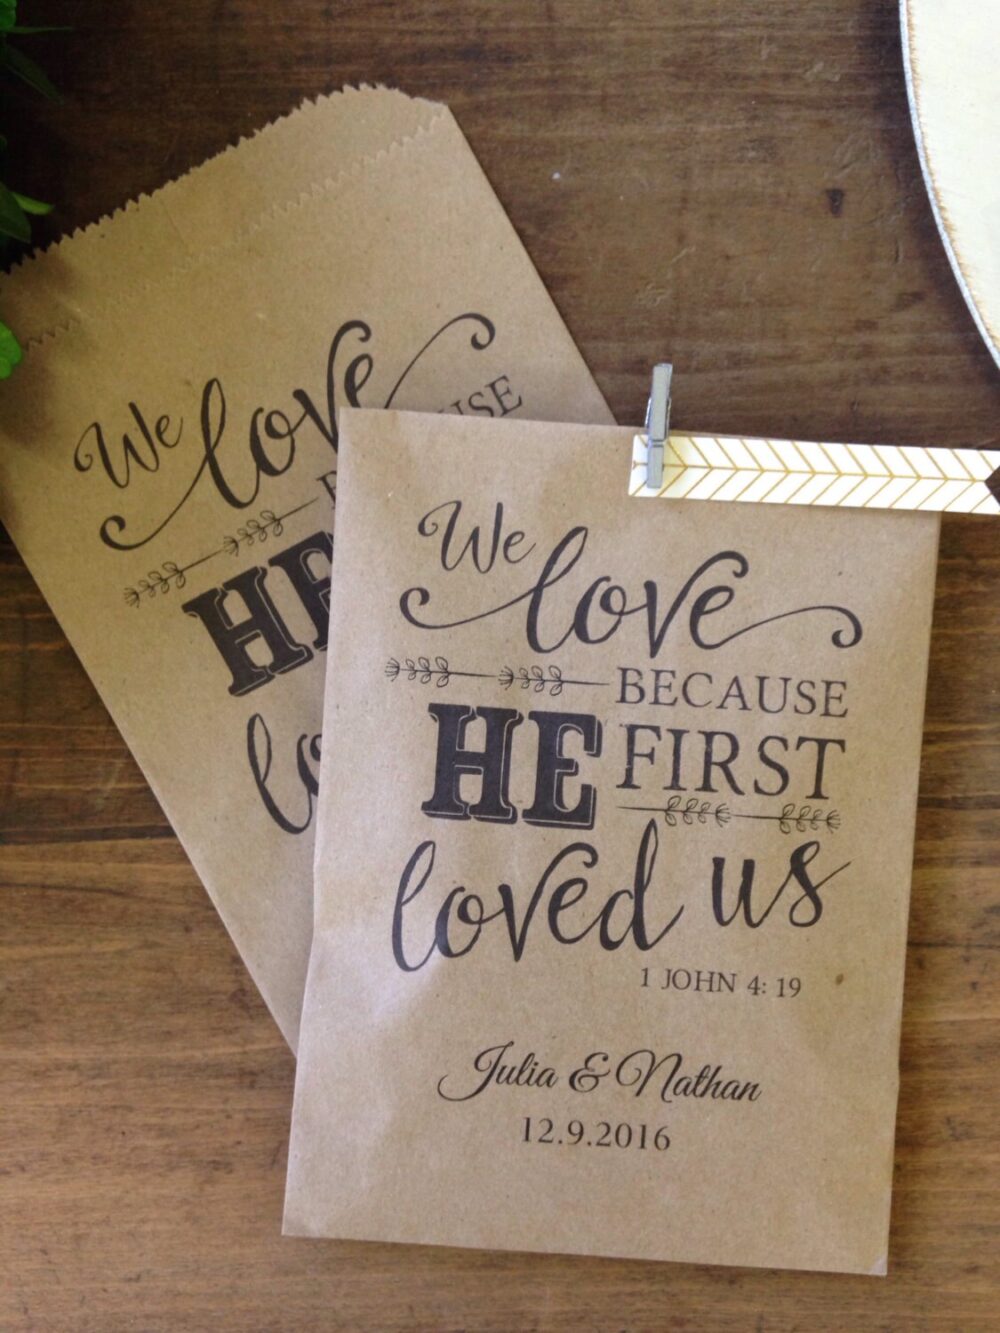 We
love
BECAUSE
HE FIRST
loved us
1 JOHN 4: 19
Julia & Nathan
12.9.2016
We
love
USE
HE
lo